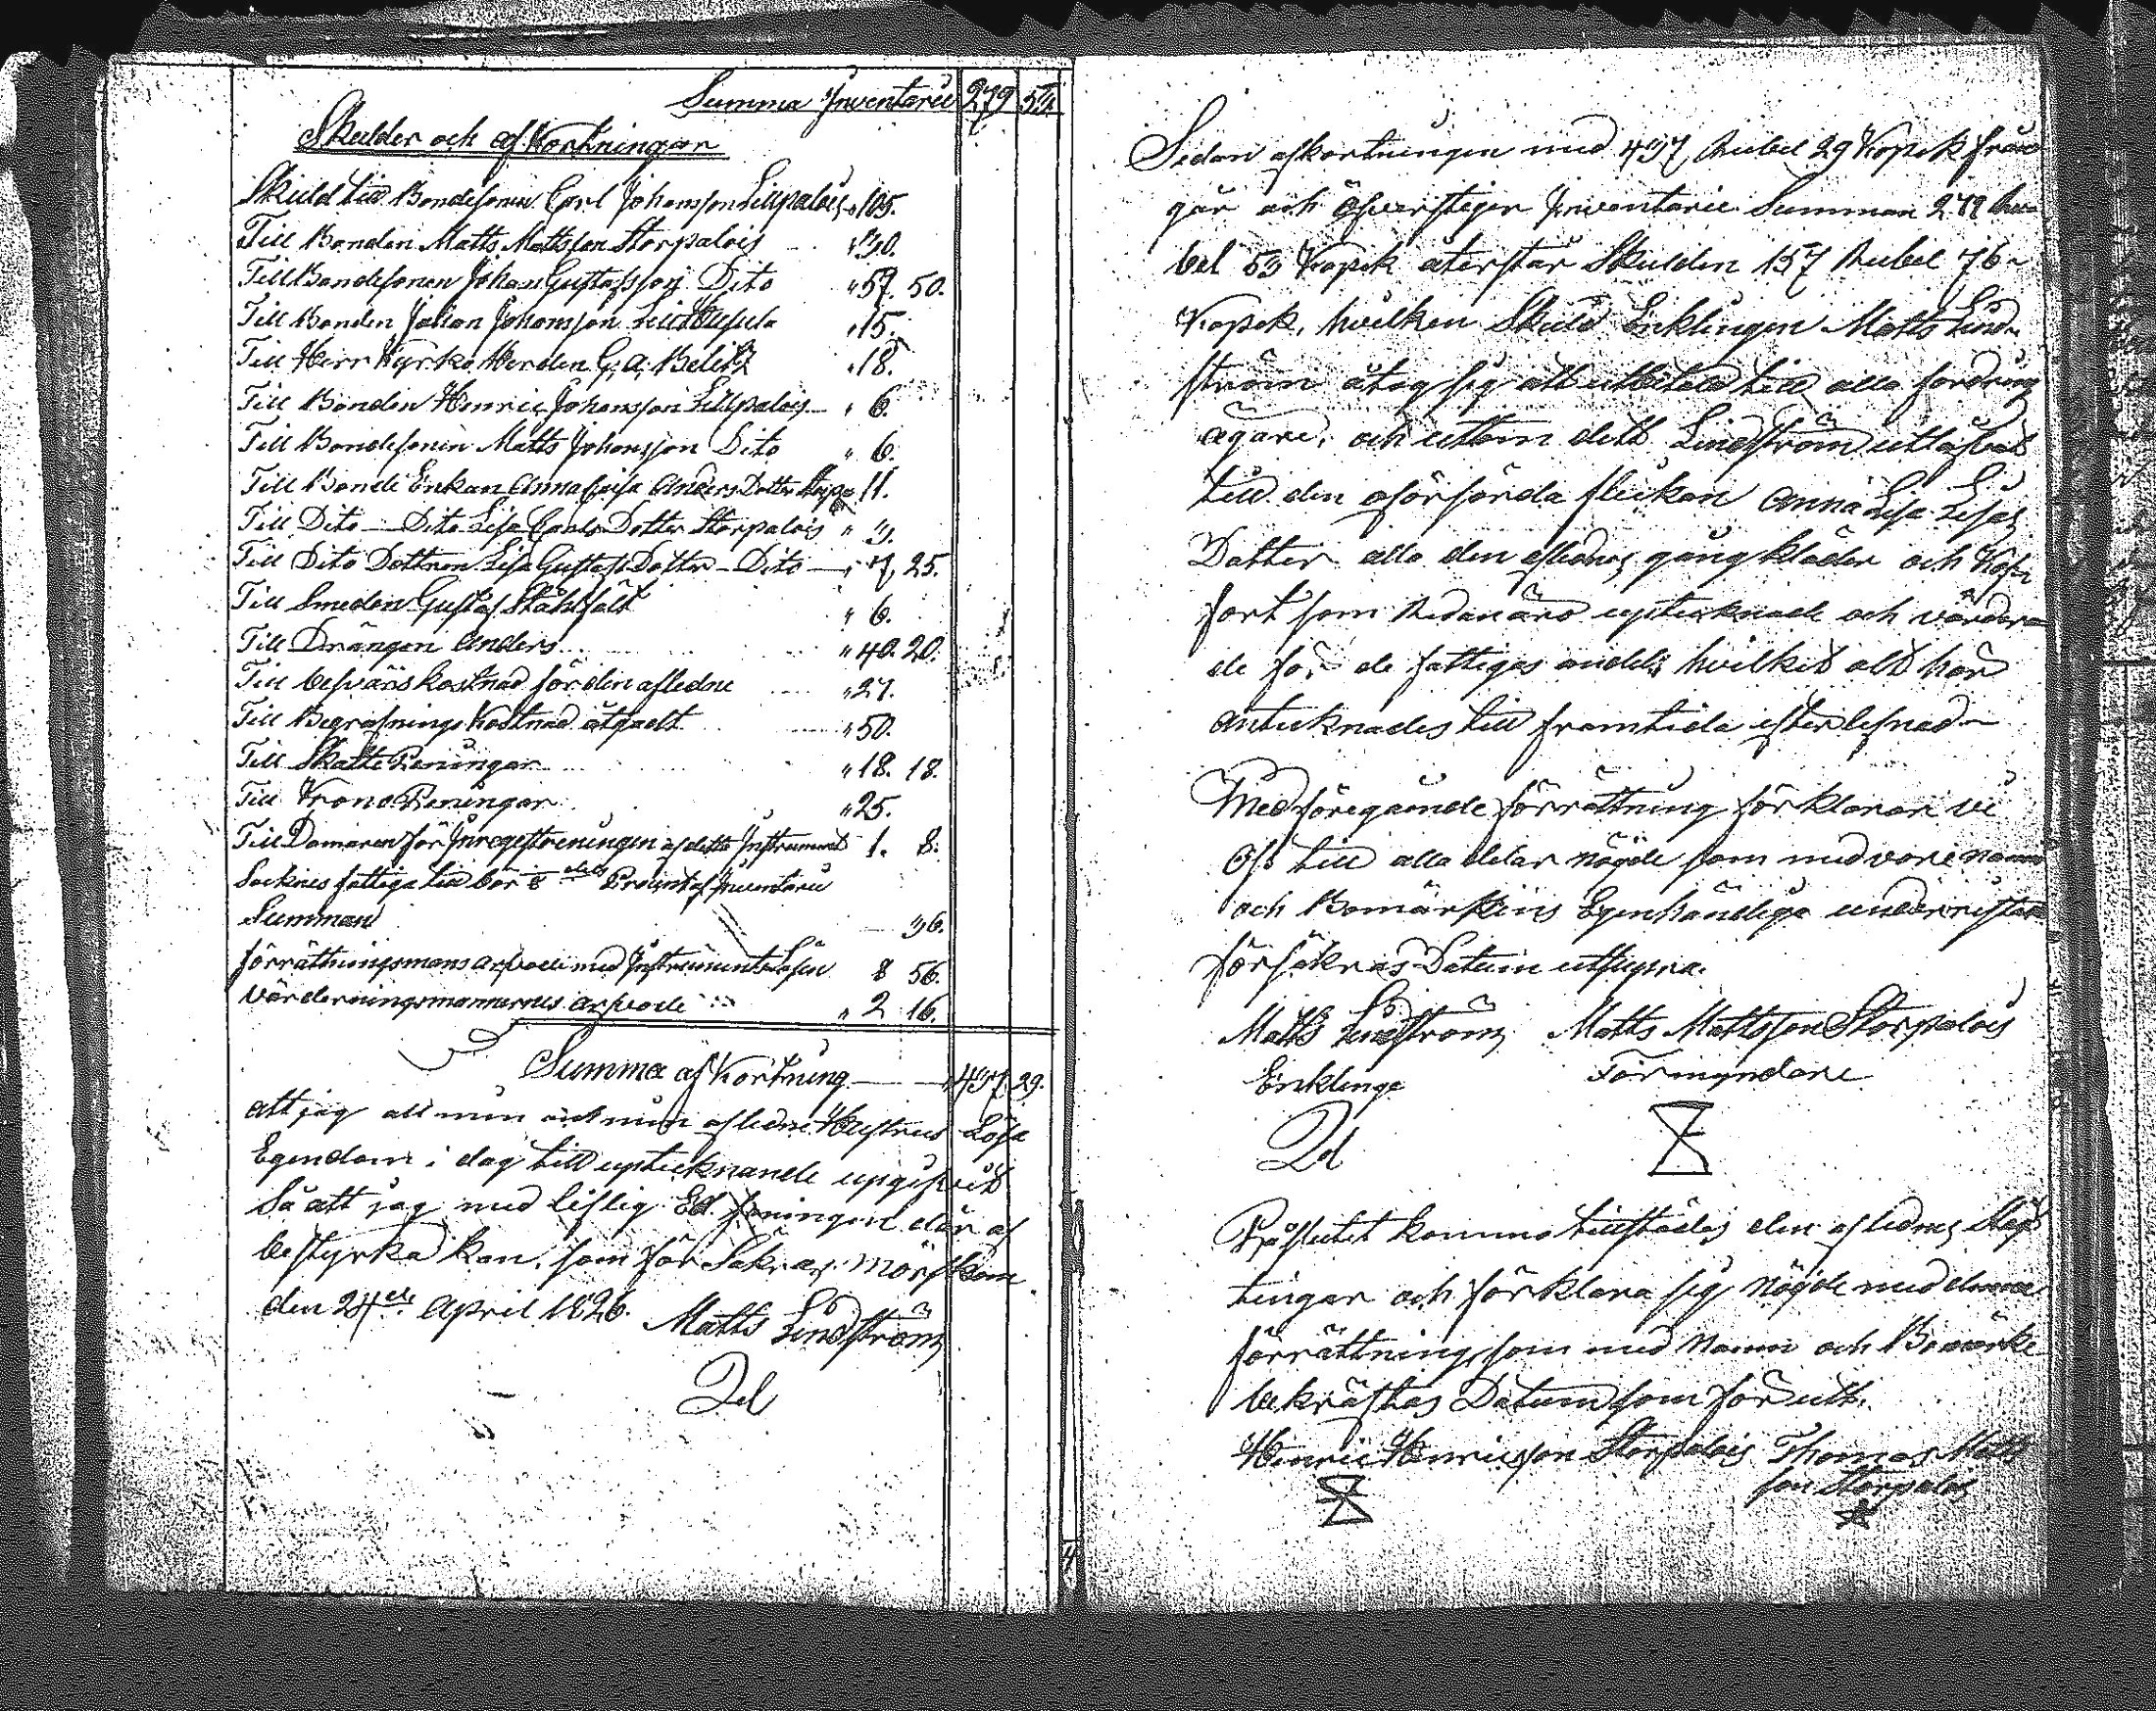 Summa Inventarii 279 53.
Skulder och afkortningar
Skuld till Bondesonen Carl Johansson Lillpalois " 105.
Till Bonden Matts Mattsson Storpalois " 30.
Till Bondesonen Johan Gustafsson Dito " 57. 50.
Till Bonden Johan Johansson " 15.
Till Herr Kyrko Herden G. A. Belitz " 18.
Till Bonden Henric Johansson Lillpalois " 6.
Till Bondesonen Matts Johansson Dito " 6.
Till Bonde Enkan Anna Caisa Anders Dotter 11.
Till Dito Dito Lisa Carls Dotter Storpalois " 3.
Till Dito Dottren Lisa Gustafs Dotter Dito 25.
Till Smeden Gustaf Stålfält " 6.
Till Drängen Anders " 40. 20.
Till besvärs kostnad för den afledne " 27.
Till Begrafnings Kostnad åtgadt " 50.
Till Skatte Peningar " 18. 18.
Till Krono Peningar " 25.
Till Domaren för Inregistreringen af detta Instrument 1. 8.
Socknes fattiga till bör 1/8 dels Procent af Inventarii
Summan 36.
förrättningsmans arfvode med Instruments Lösen 8 56.
Värderningsmannernes arfvode " 2 16.
Summa af Kortning " 437. 29.
att jag all min och min aflidne Hustrus Lösa
Egendom i dag till uptecknande upgifvit
Så att jag med liflig Ed sanningen där af
bestyrka kan, som försäkras. Mörskom
den 24de April 1826. Matts Lindström
Sedan afkortningen med 437 Rubel 29 Kopek från
går och öfverstiger Inventarii Summan 279 Ru-
bel 53 Kopek återstår Skulden 157 Rubel 76
Kopek, hvilken Skuld Enklingen Matts Lind-
ström åtog sig att utbetala till alla fordrings
ägare, och uttom dett Lindström utlåfvat
till den oförsörda flickan Anna Lisa Lisas
Dotter alla den aflednes gång kläder och
fort som Redan äro uptecknade och värdera-
de för de fattigas andel, hvilket alt här
antecknades till framtida efterlefnad
Med föregående förrättning förklarar vi
Oss till alla delar nögde som med våre namn
och Bomärkens Egenhändiga underristan
försäkras Datum utsupra.
Matts Lindström Matts Mattsson Storpalois
Enklinge Förmyndare
På slutet kommo tillstädes den aflednes Släg-
tingar och förklara sig nögde med denna
förrättning, som med Namn och Bomärke
bekräftas Datum som förutt.
Henric Henricsson Storpalois Thomas Matts
son Storpalois